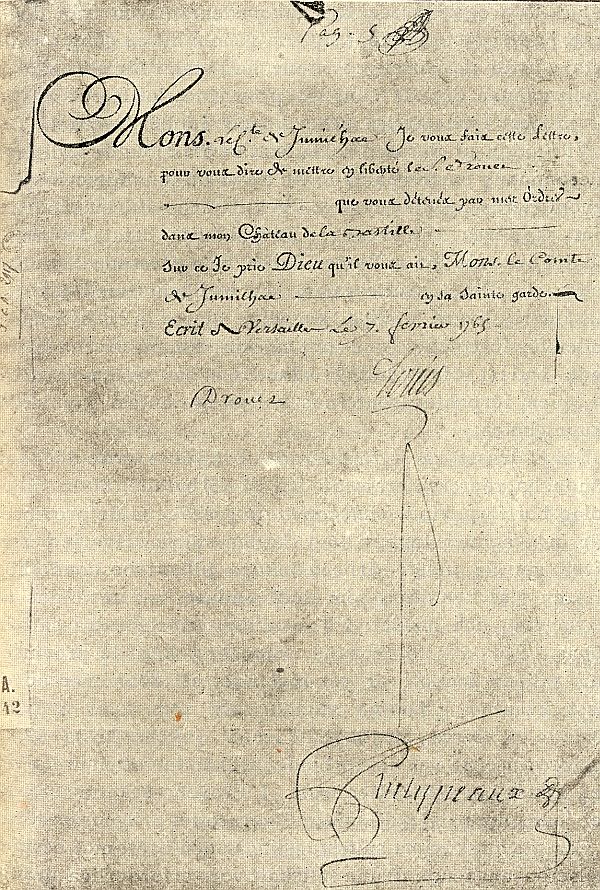 Pag. 5
Mons. le C.te de Jumilhac Je vous fais cette Lettre,
pour vous dire de mettre en liberté le S. Drouet
que vous détenés par mes Ordres
dans mon Château de la Bastille
Sur ce Je prie Dieu qu'il vous ait, Mons. le Comte
de Jumilhac en sa sainte garde.
Ecrit A Versailles Le 7. fevrier 1765
Drouet
Louis
Phelypeaux
A.
12